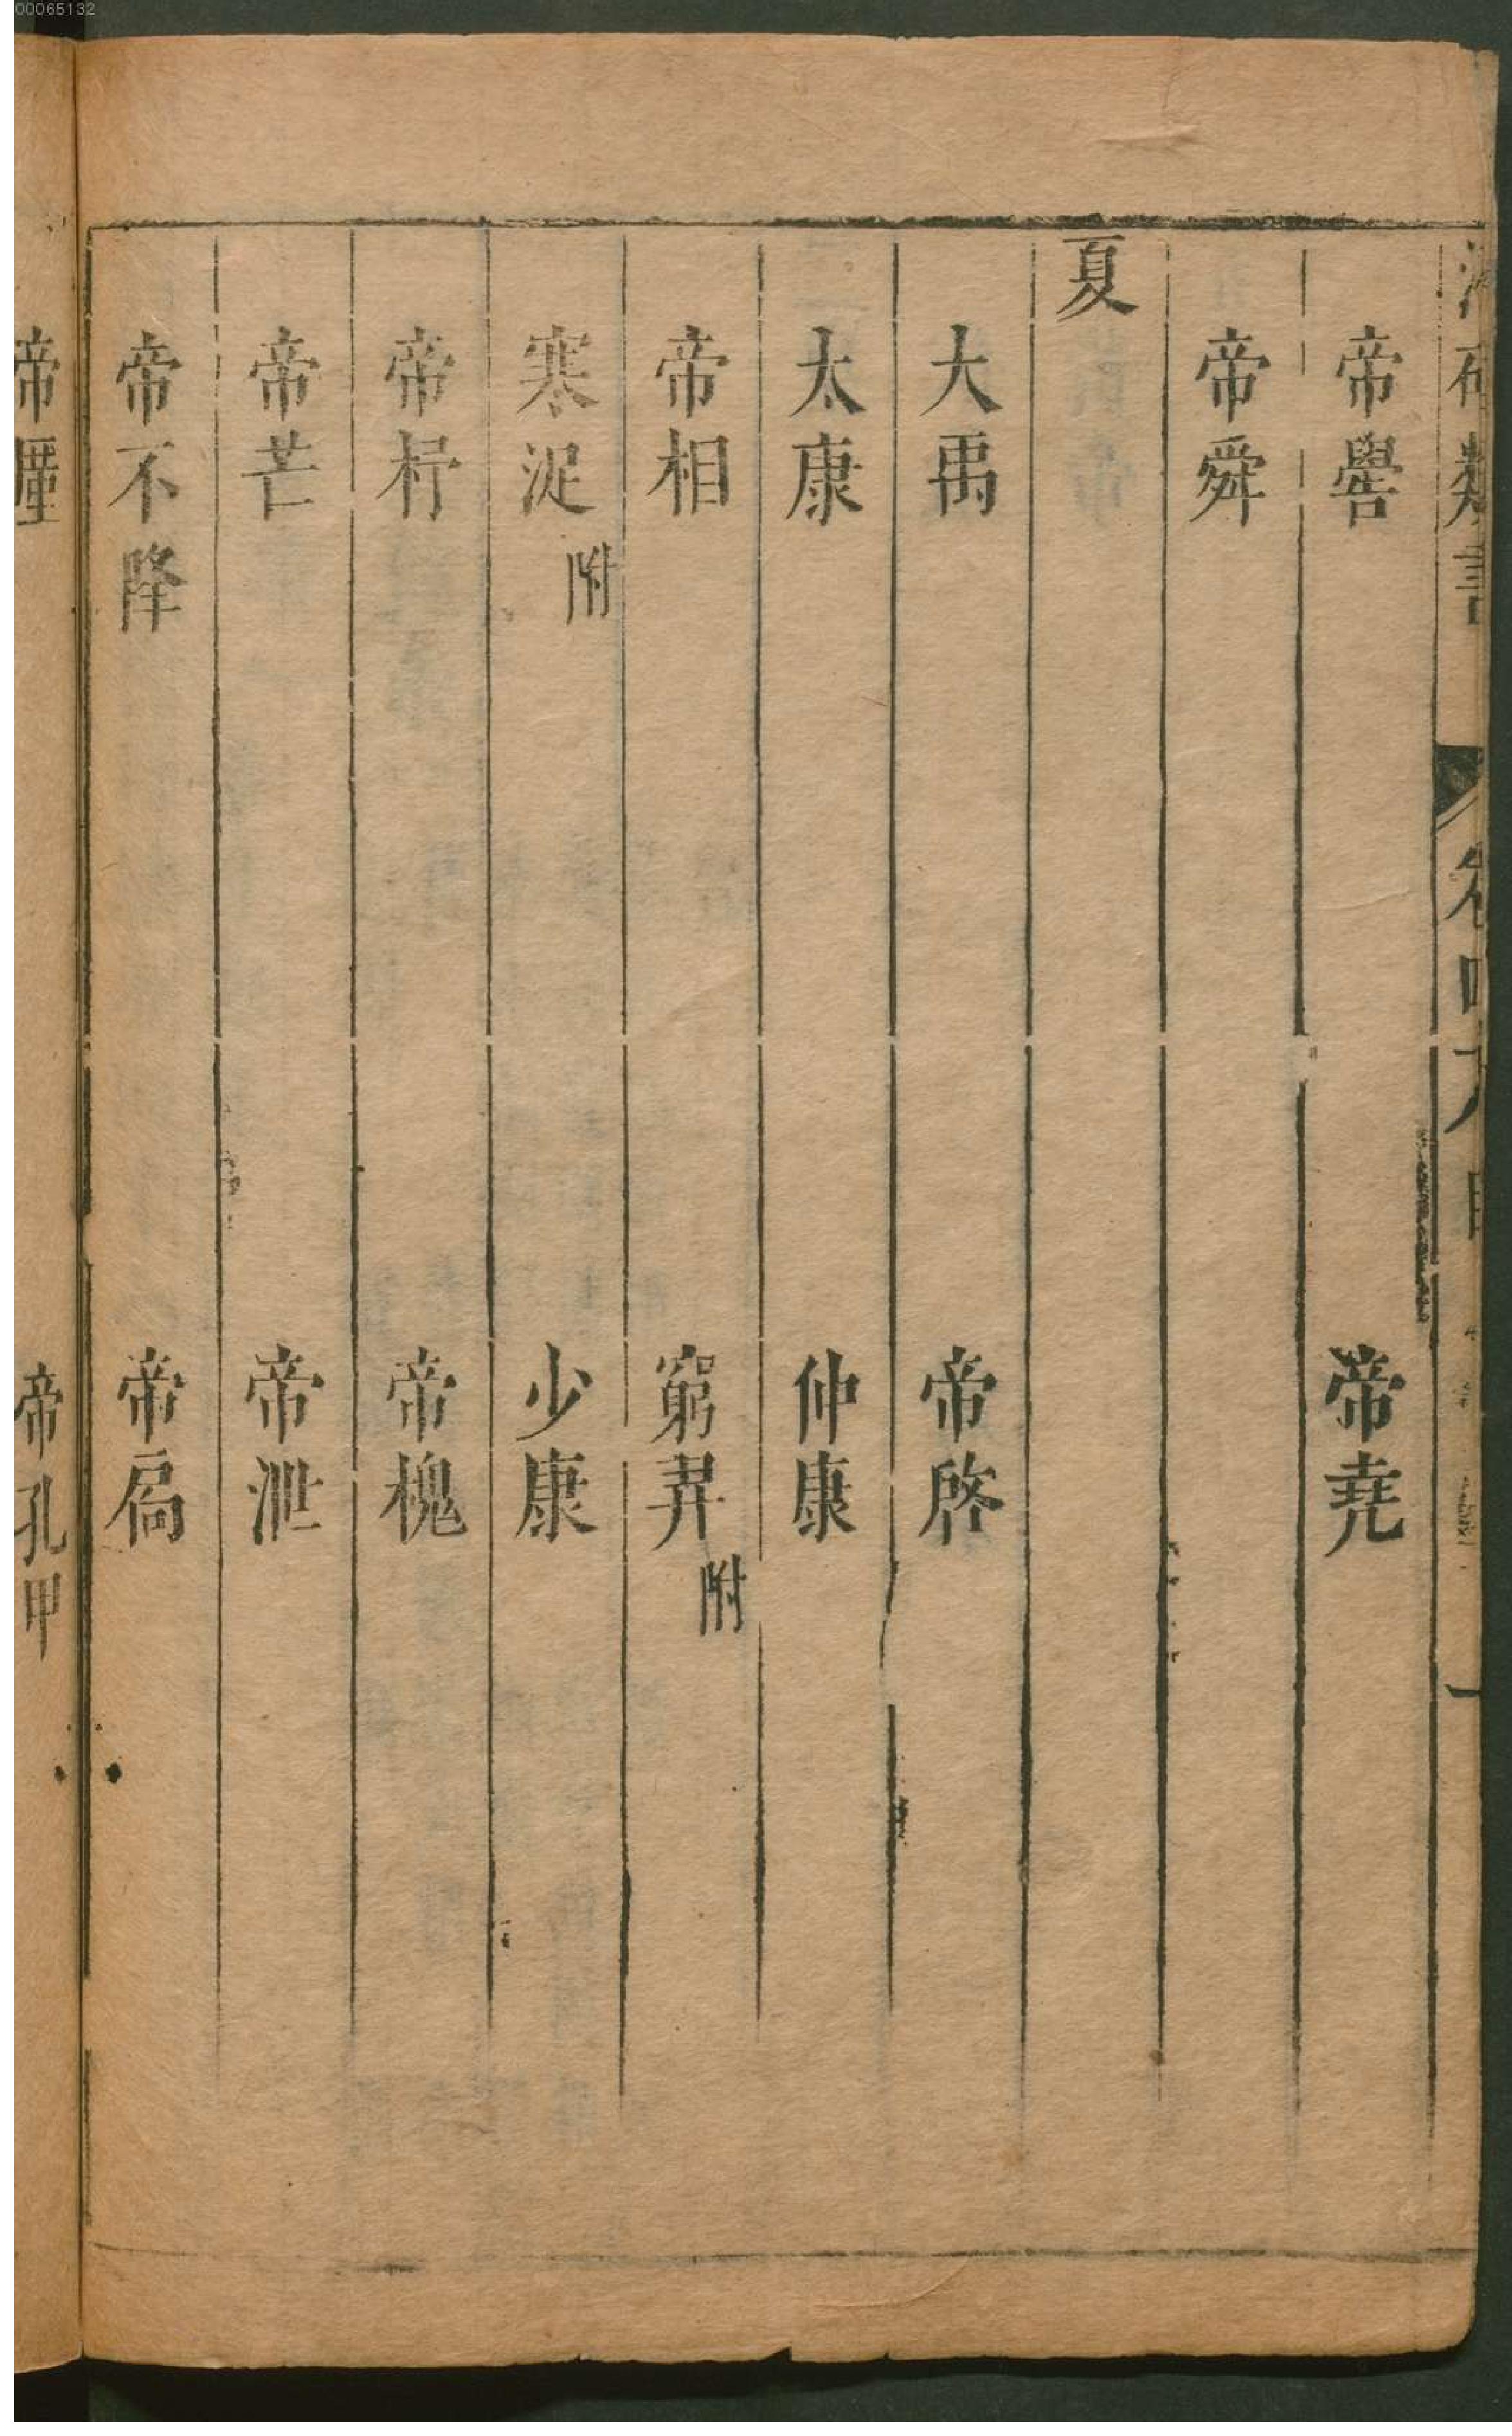 00065132
類書
帝嚳 帝堯
帝舜
夏
大禹 帝啓
太康 仲康
帝相 窮羿附
寒浞附 少康
帝杼 帝槐
帝芒 帝泄
帝不降 帝扃
帝廑 帝孔甲